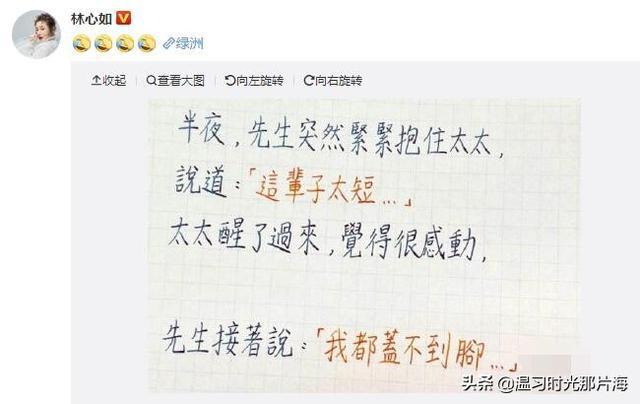 林心如
绿洲
收起 查看大图 向左旋转 向右旋转
半夜,先生突然緊緊抱住太太,
說道:「這輩子太短...」
太太醒了過來,覺得很感動,
先生接著說:「我都蓋不到腳...」
头条 @温习时光那片海